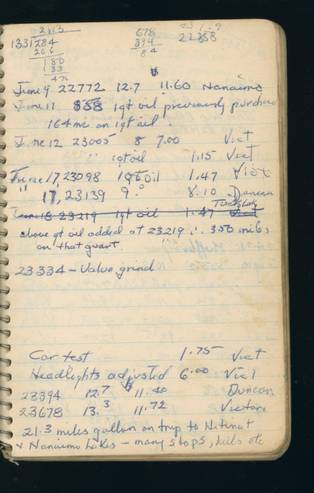 21.3
133)284
266
180
133
47
678
394
84
June 9 22772 12.7 11.60 Nanaimo
June 11 1qt oil previously purchased
164 mi on 1qt oil
June 12 23005 8 7.00 Vict
" 1qt oil 1.15 Vict
June 17, 23098 1Qt oil 1.47 Vict
" 17, 23139 9.0 8.10 Duncan
June 18 23219 1qt oil 1.47 Vict
above qt oil added at 23219 ∴ 350 miles
on that quart
23334 - Valve grind
Car test 1.75 Vict
Headlights adjusted 6.00 Vict
23394 12.7 11.40 Duncan
23678 13.3 11.72 Victoria
21.3 miles gallon on trip to Nitinat
+ Nanaimo Lakes - many stops, hills etc